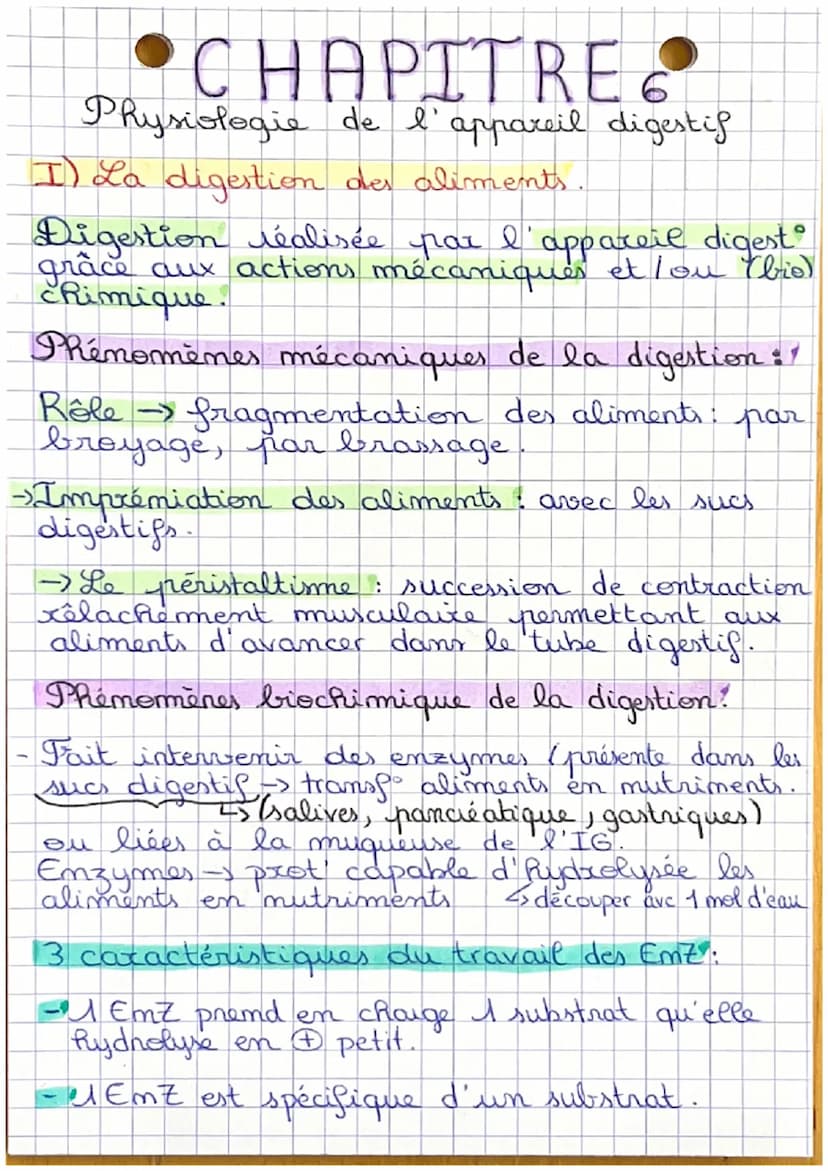 CHAPITRE 6
Physiologie de l'appareil digestif
I) La digestion des aliments.
Digestion réalisée par l'appareil digest°
grâce aux actions mécaniques et/ou (bio)
chimique.
Phénomènes mécaniques de la digestion :
Rôle → fragmentation des aliments : par
broyage, par brassage.
→ Imprémiation des aliments : avec les sucs
digestifs.
→ Le péristaltisme : succession de contraction
relâchement musculaire permettant aux
aliments d'avancer dans le tube digestif.
Phénomènes biochimique de la digestion :
- Fait intervenir des enzymes (présente dans les
sucs digestif → transf° aliments en nutriments.
↳ (salives, pancréatique, gastriques)
ou liées à la muqueuse de l'IG.
Enzymes → prot' capable d'hydrolysée les
aliments en nutriments ↳ découper avc 1 mol d'eau
3 caractéristiques du travail des EmZ :
- 1 EmZ prend en charge 1 substrat qu'elle
hydrolyse en ⊕ petit.
- 1 EmZ est spécifique d'un substrat.